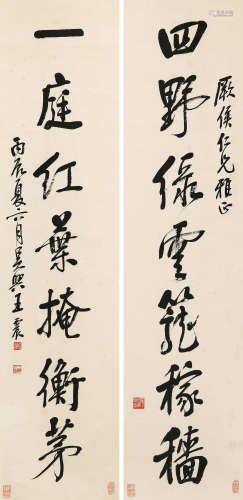 厥侯仁兄雅正
四野綠雲籠稼穡
一庭紅葉掩衡茅
丙辰夏六月吳興王震